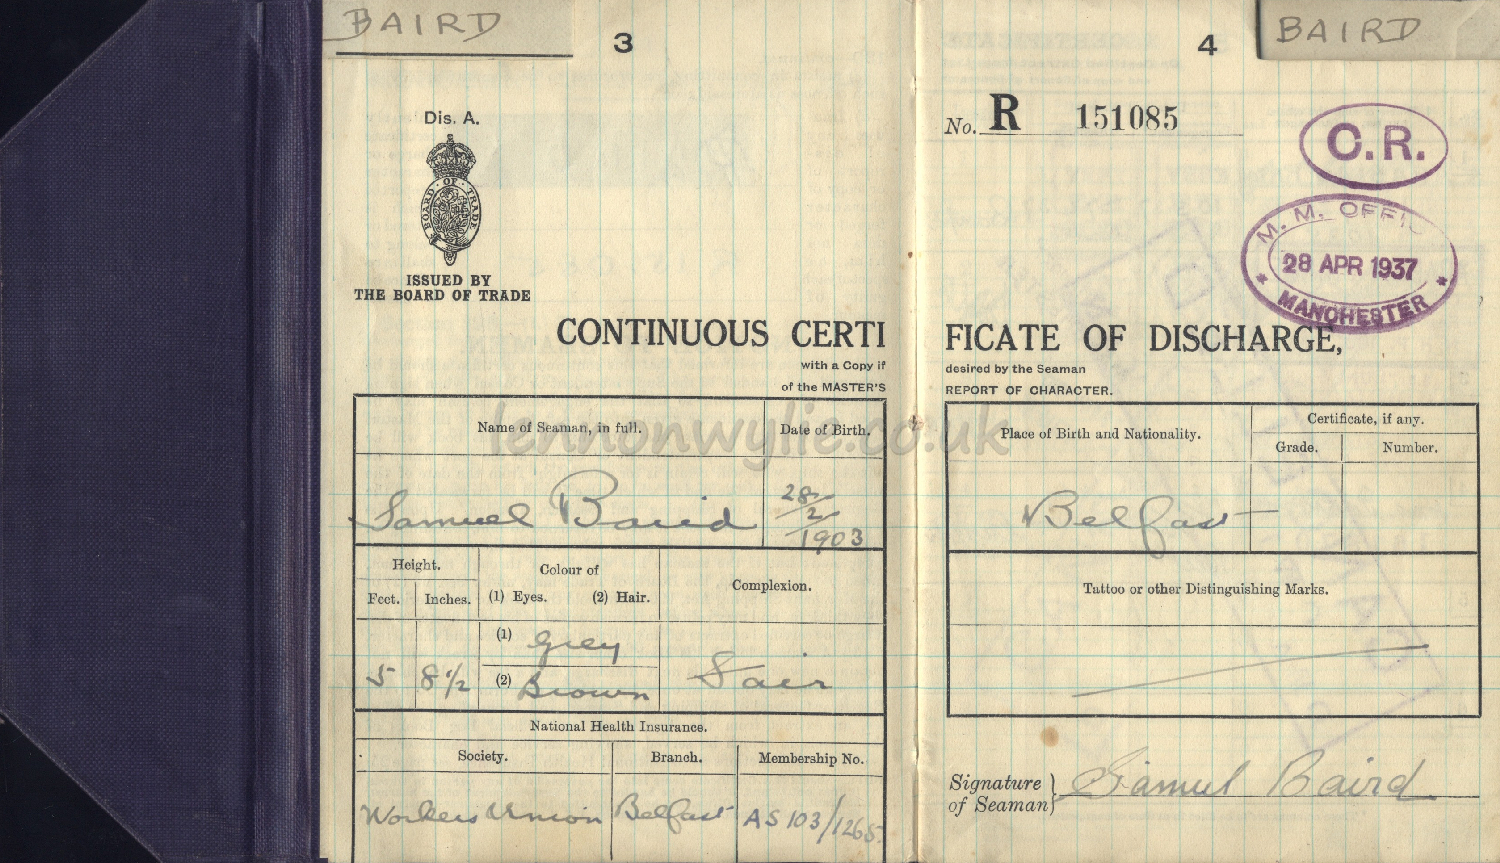 BAIRD
3
Dis. A.
BOARD · OF · TRADE
ISSUED BY
THE BOARD OF TRADE
CONTINUOUS CERTI
with a Copy if
of the MASTER'S
Name of Seaman, in full.
Date of Birth.
Samuel Baird
28/
2/
1903
Height.
Feet.
Inches.
Colour of
(1) Eyes.
(2) Hair.
Complexion.
5
8 1/2
(1) Grey
(2) Brown
Fair
National Health Insurance.
Society.
Branch.
Membership No.
Workers Union
Belfast
AS 103/1265
4
BAIRD
No. R 151085
C.R.
M. M. OFFIC
28 APR 1937
* MANCHESTER *
FICATE OF DISCHARGE,
desired by the Seaman
REPORT OF CHARACTER.
Place of Birth and Nationality.
Certificate, if any.
Grade.
Number.
Belfast
Tattoo or other Distinguishing Marks.
Signature
of Seaman
Samuel Baird
lennonwylie.co.uk